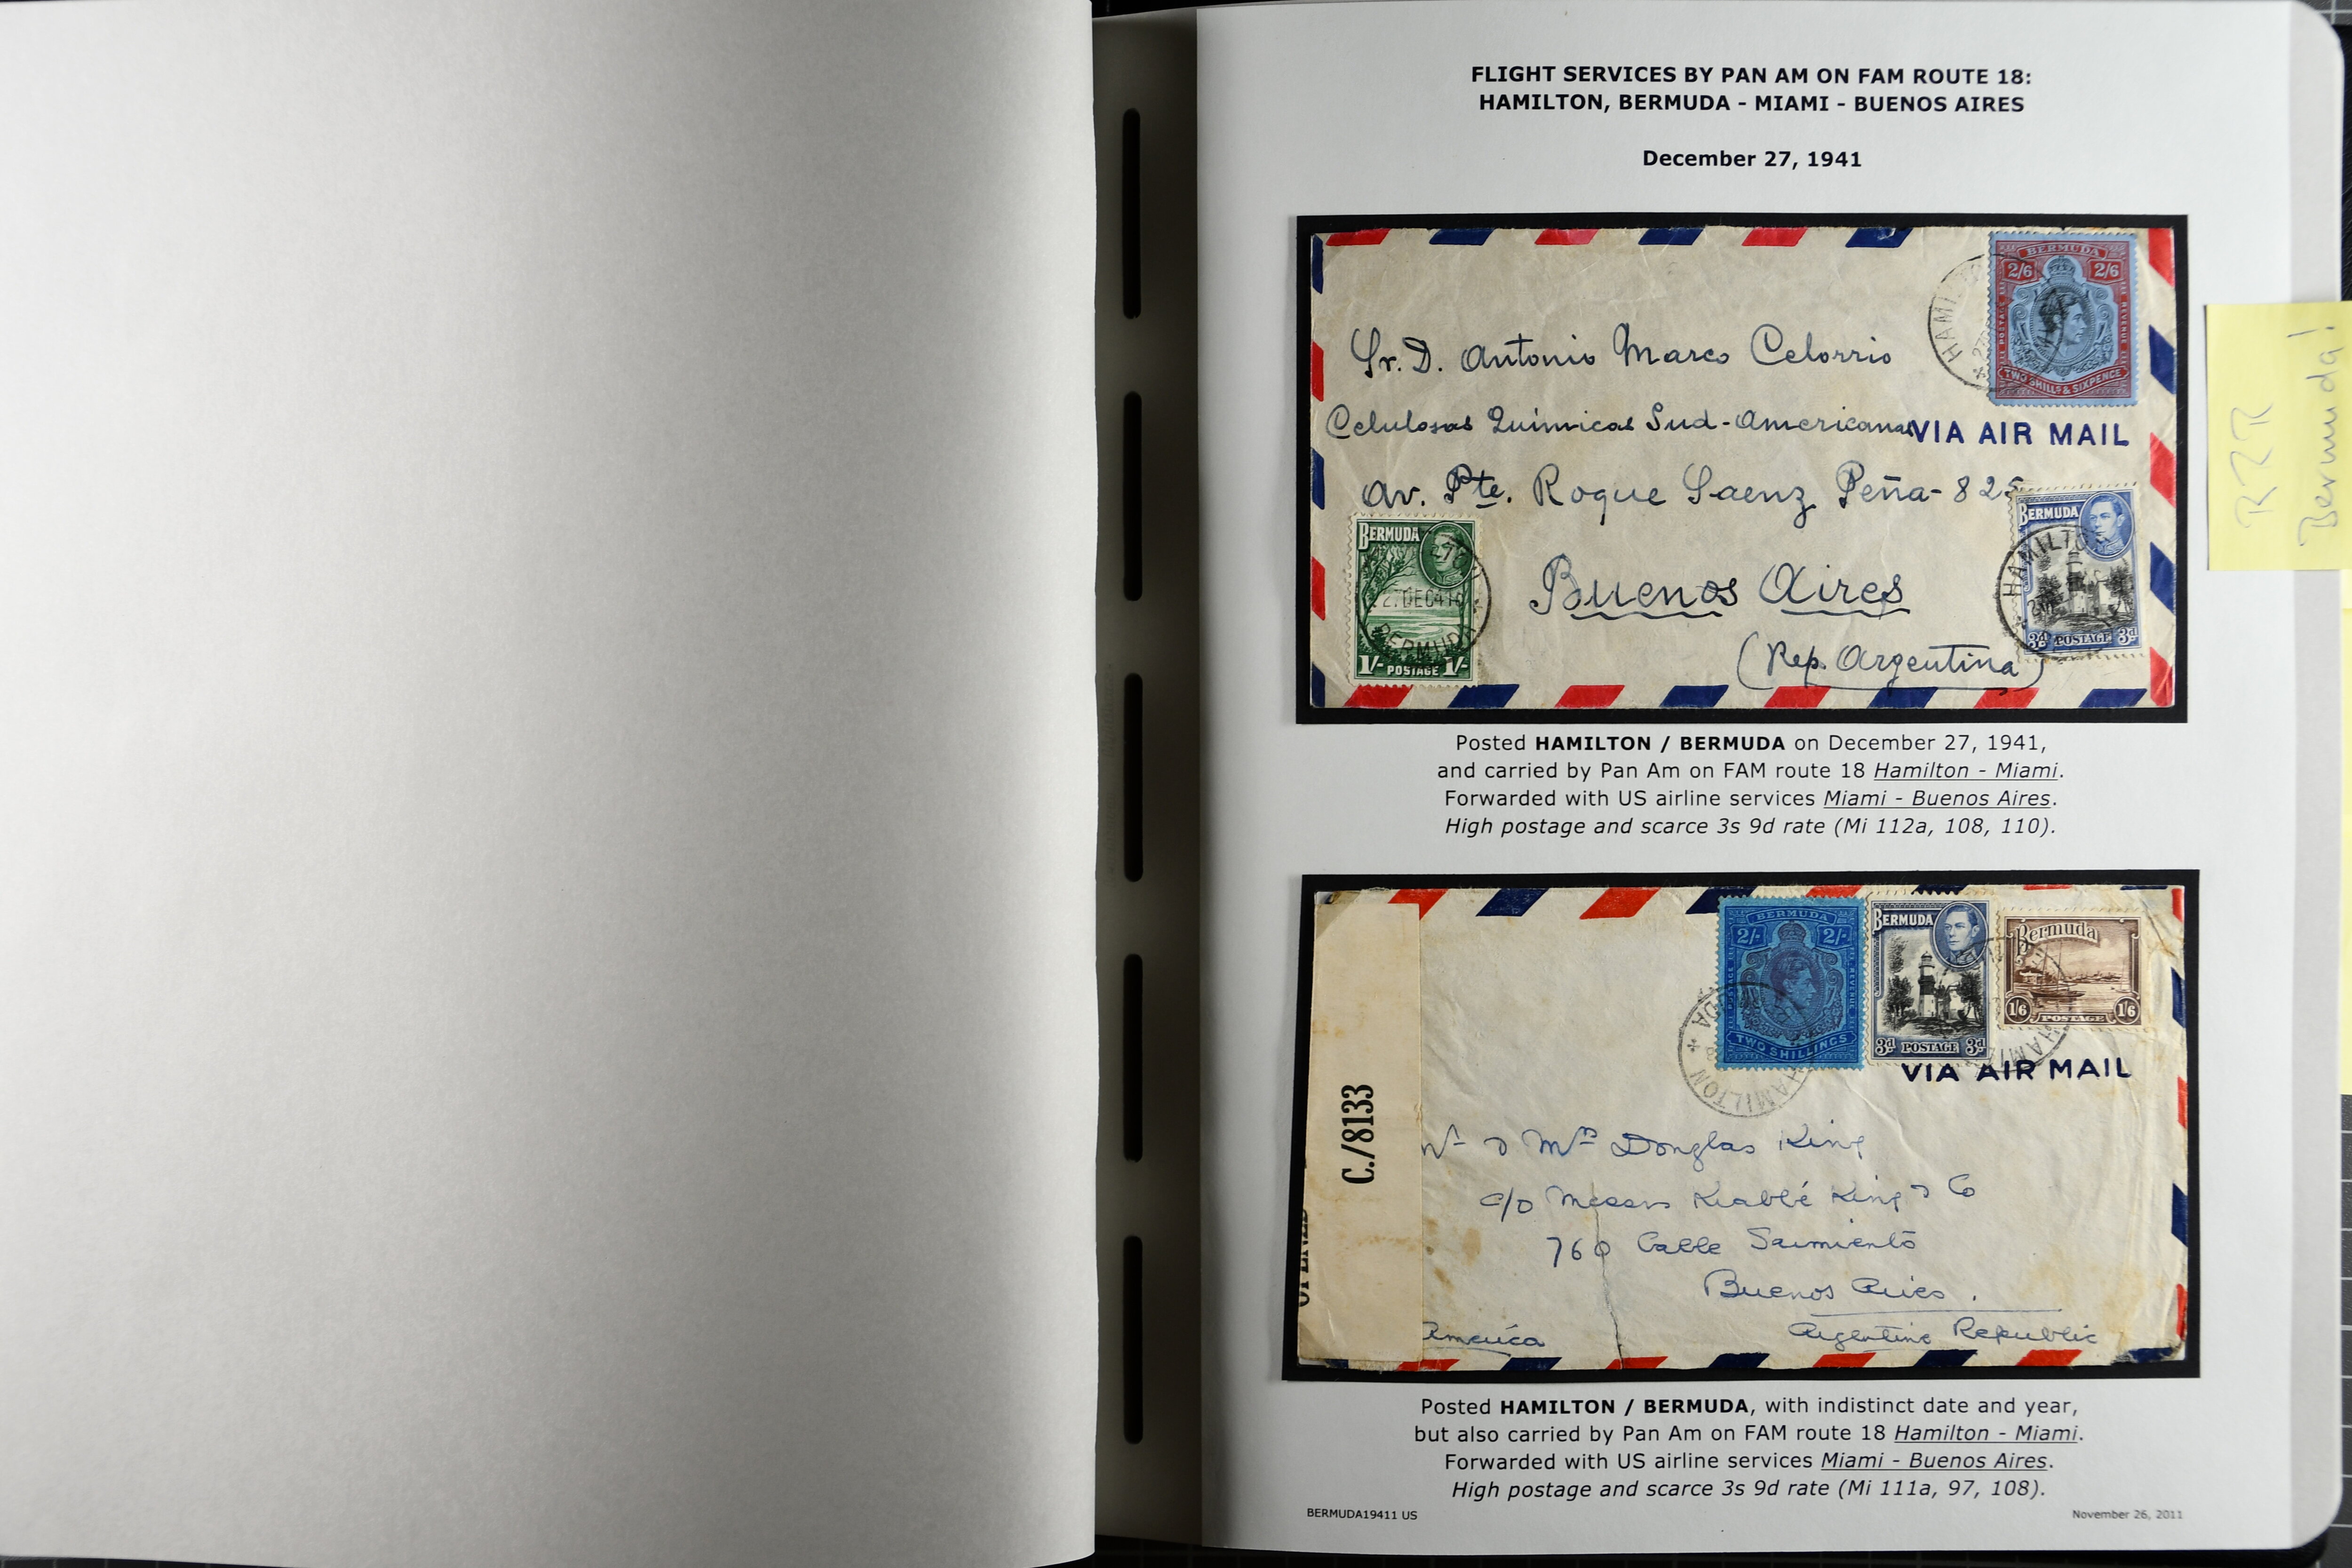 FLIGHT SERVICES BY PAN AM ON FAM ROUTE 18:
HAMILTON, BERMUDA - MIAMI - BUENOS AIRES
December 27, 1941
BERMUDA
2/6 2/6
POSTAGE REVENUE
TWO SHILLS & SIXPENCE
HAMILTON
Sr. D. Antonio Marco Celorrio
Celulosas Químicas Sud-Americanas
VIA AIR MAIL
Av. Pte. Roque Saenz Peña - 825
BERMUDA
27 DEC 41
BERMUDA
1/- POSTAGE 1/-
BERMUDA
HAMILTON
3d POSTAGE 3d
Buenos Aires
(Rep. Argentina)
RRR
Bermuda!
Posted HAMILTON / BERMUDA on December 27, 1941,
and carried by Pan Am on FAM route 18 Hamilton - Miami.
Forwarded with US airline services Miami - Buenos Aires.
High postage and scarce 3s 9d rate (Mi 112a, 108, 110).
BERMUDA
2/- 2/-
POSTAGE REVENUE
TWO SHILLINGS
BERMUDA
3d POSTAGE 3d
Bermuda
1/6 POSTAGE 1/6
HAMILTON
VIA AIR MAIL
C./8133
Mrs Douglas King
c/o Messrs King & Co
760 Calle Sarmiento
Buenos Aires.
America
Argentine Republic
Posted HAMILTON / BERMUDA, with indistinct date and year,
but also carried by Pan Am on FAM route 18 Hamilton - Miami.
Forwarded with US airline services Miami - Buenos Aires.
High postage and scarce 3s 9d rate (Mi 111a, 97, 108).
BERMUDA19411 US
November 26, 2011